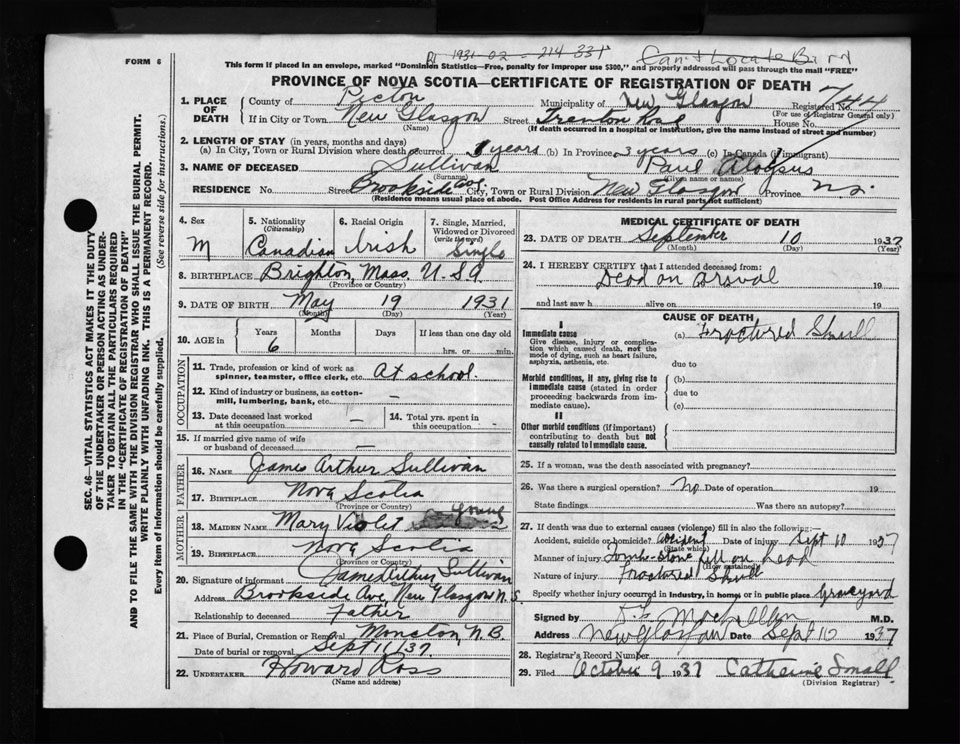 FORM 6
1931-02-214 331
Can't Locate Bird
This form if placed in an envelope, marked "Dominion Statistics—Free, penalty for improper use $300," and properly addressed will pass through the mail "FREE"
PROVINCE OF NOVA SCOTIA—CERTIFICATE OF REGISTRATION OF DEATH
1. PLACE OF DEATH
County of Pictou Municipality of New Glasgow Registered No. 744
(For use of Registrar General only)
If in City or Town New Glasgow Street Trenton Road House No.
(Name) (If death occurred in a hospital or institution, give the name instead of street and number)
2. LENGTH OF STAY (in years, months and days)
(a) In City, Town or Rural Division where death occurred 3 years (b) In Province 3 years (c) In Canada if immigrant
3. NAME OF DECEASED Sullivan Paul Aloysus
(Surname) (Given name or names)
RESIDENCE No. Street Brookside Ave. City, Town or Rural Division New Glasgow Province N.S.
(Residence means usual place of abode. Post Office Address for residents in rural parts not sufficient)
4. Sex M
5. Nationality (Citizenship) Canadian
6. Racial Origin Irish
7. Single, Married, Widowed or Divorced (write the word) Single
8. BIRTHPLACE Brighton, Mass. U.S.A.
(Province or Country)
9. DATE OF BIRTH May 19 1931
(Month) (Day) (Year)
10. AGE in Years Months Days If less than one day old
6 hrs. or min.
OCCUPATION
11. Trade, profession or kind of work as spinner, teamster, office clerk, etc. At school.
12. Kind of industry or business, as cotton-mill, lumbering, bank, etc. —
13. Date deceased last worked at this occupation —
14. Total yrs. spent in this occupation -
15. If married give name of wife or husband of deceased —
FATHER
16. NAME James Arthur Sullivan
17. BIRTHPLACE Nova Scotia
(Province or Country)
MOTHER
18. MAIDEN NAME Mary Violet Young
19. BIRTHPLACE Nova Scotia
(Province or Country)
20. Signature of informant James Arthur Sullivan
Address Brookside Ave, New Glasgow N.S.
Relationship to deceased Father
21. Place of Burial, Cremation or Removal Moncton, N.B.
Date of burial or removal Sept 11/37.
22. UNDERTAKER Howard Ross
(Name and address)
MEDICAL CERTIFICATE OF DEATH
23. DATE OF DEATH September 10 1937
(Month) (Day) (Year)
24. I HEREBY CERTIFY that I attended deceased from:
Dead on arival 19
and last saw h alive on 19
CAUSE OF DEATH
I
Immediate cause
Give disease, injury or complication which caused death, not the mode of dying, such as heart failure, asphyxia, asthenia, etc.
(a) Fractured Skull
due to
Morbid conditions, if any, giving rise to immediate cause (stated in order proceeding backwards from immediate cause).
(b)
due to
(c)
II
Other morbid conditions (if important) contributing to death but not causally related to immediate cause.
25. If a woman, was the death associated with pregnancy?
26. Was there a surgical operation? No Date of operation 19
State findings Was there an autopsy?
27. If death was due to external causes (violence) fill in also the following:—
Accident, suicide or homicide? accident Date of injury Sept 10 1937
(State which)
Manner of injury Tomb-stone fell on head
(How sustained)
Nature of injury Fractured Skull
Specify whether injury occurred in industry, in home, or in public place Graveyard
Signed by M.D.
Address New Glasgow Date Sept 10 1937
28. Registrar's Record Number
29. Filed October 9 1937 Catherine Small
(Division Registrar)
SEC. 46—VITAL STATISTICS ACT MAKES IT THE DUTY OF THE UNDERTAKER OR PERSON ACTING AS UNDERTAKER TO OBTAIN ALL THE PARTICULARS REQUIRED IN THE "CERTIFICATE OF REGISTRATION OF DEATH" AND TO FILE THE SAME WITH THE DIVISION REGISTRAR WHO SHALL ISSUE THE BURIAL PERMIT.
WRITE PLAINLY WITH UNFADING INK. THIS IS A PERMANENT RECORD.
Every item of information should be carefully supplied. (See reverse side for instructions.)